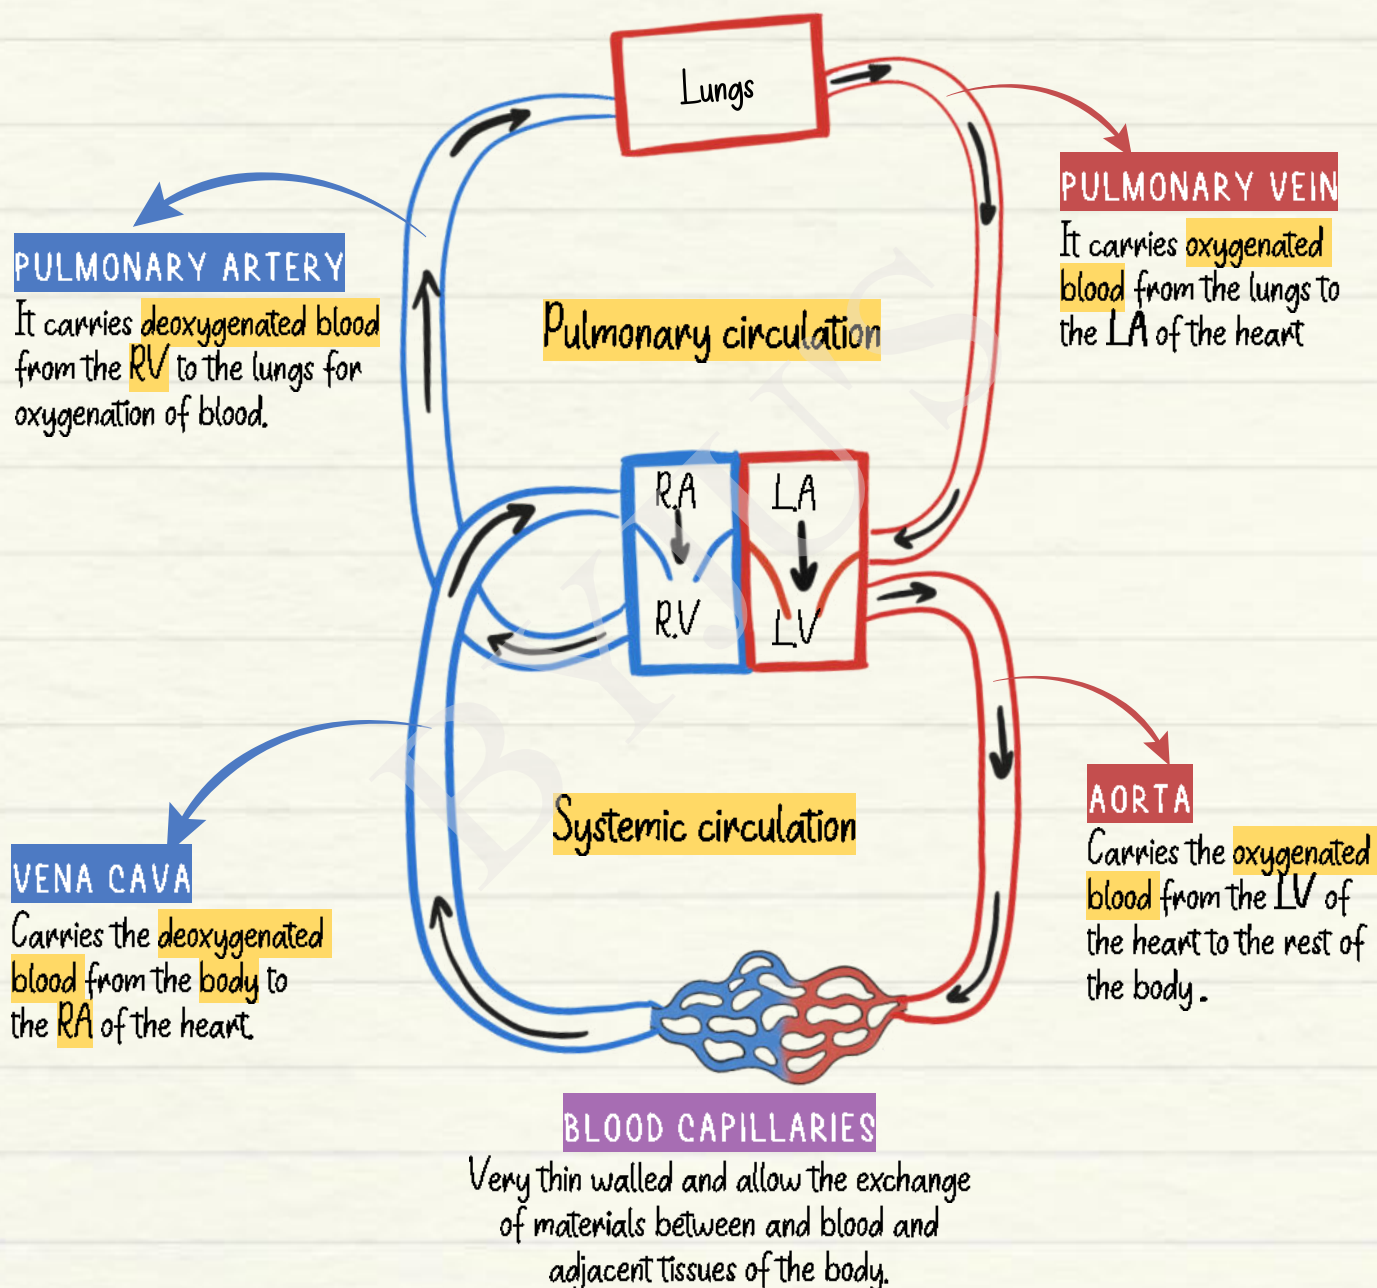 Lungs
PULMONARY VEIN
It carries oxygenated
blood from the lungs to
the LA of the heart
PULMONARY ARTERY
It carries deoxygenated blood
from the RV to the lungs for
oxygenation of blood.
Pulmonary circulation
R.A
L.A
R.V
L.V
BYJUS
AORTA
Carries the oxygenated
blood from the LV of
the heart to the rest of
the body.
Systemic circulation
VENA CAVA
Carries the deoxygenated
blood from the body to
the RA of the heart.
BLOOD CAPILLARIES
Very thin walled and allow the exchange
of materials between and blood and
adjacent tissues of the body.